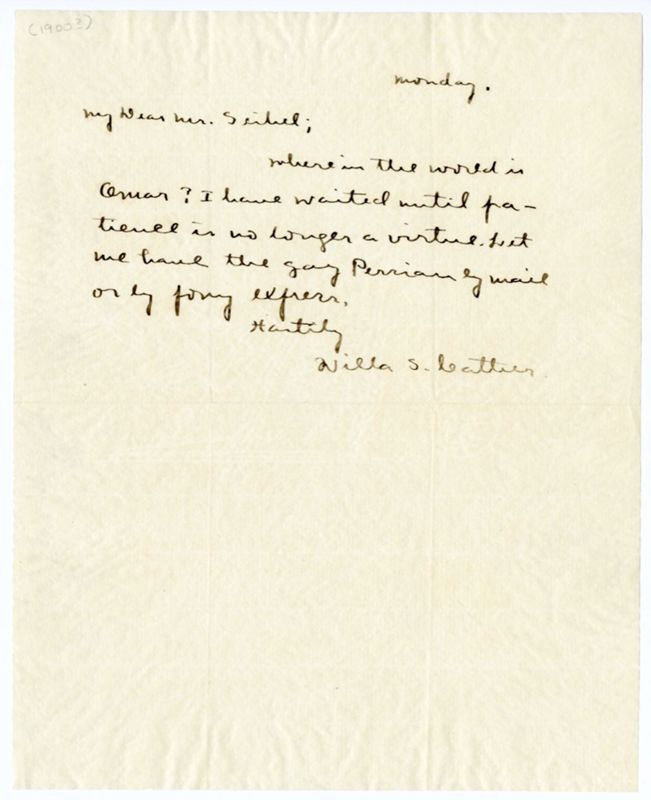 (1900?)
Monday.
My Dear Mr. Seibel;
Where in the world is
Omar? I have waited until pa-
tience is no longer a virtue. Let
me have the gay Persian by mail
or by pony express.
Hastily
Willa S. Cather.